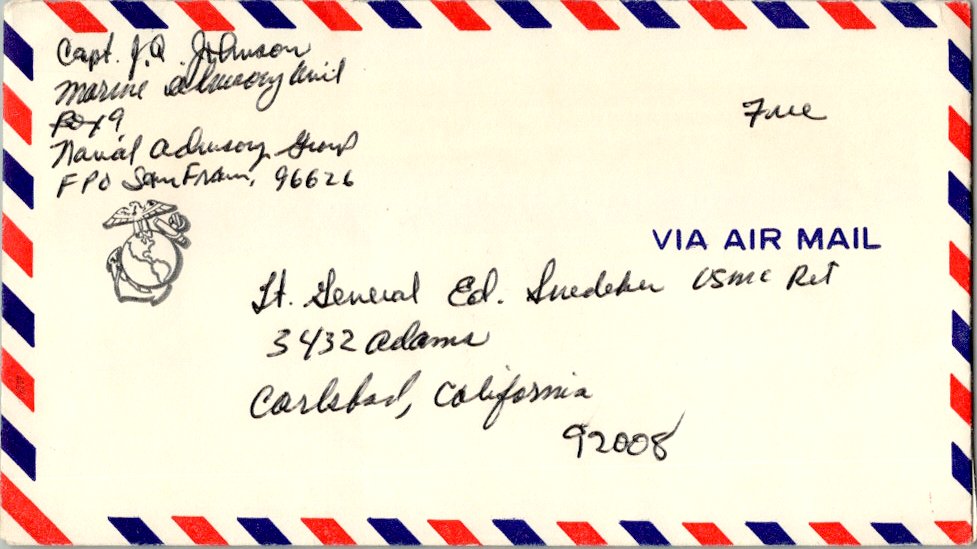 Capt. J.Q. Johnson
Marine Advisory Unit
Naval Advisory Group
FPO San Fran, 96626
Free
VIA AIR MAIL
Lt. General Ed. Snedeker USMC Ret
3432 Adams
Carlsbad, California
92008